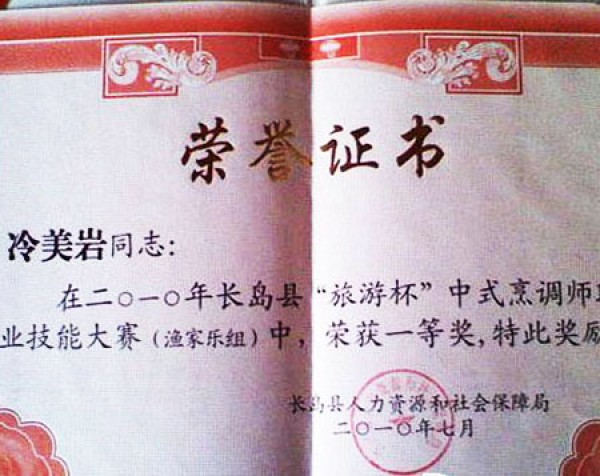 荣誉证书
冷美岩同志:
在二○一○年长岛县“旅游杯”中式烹调师职
业技能大赛(渔家乐组)中,荣获一等奖,特此奖励
长岛县人力资源和社会保障局
二○一○年七月